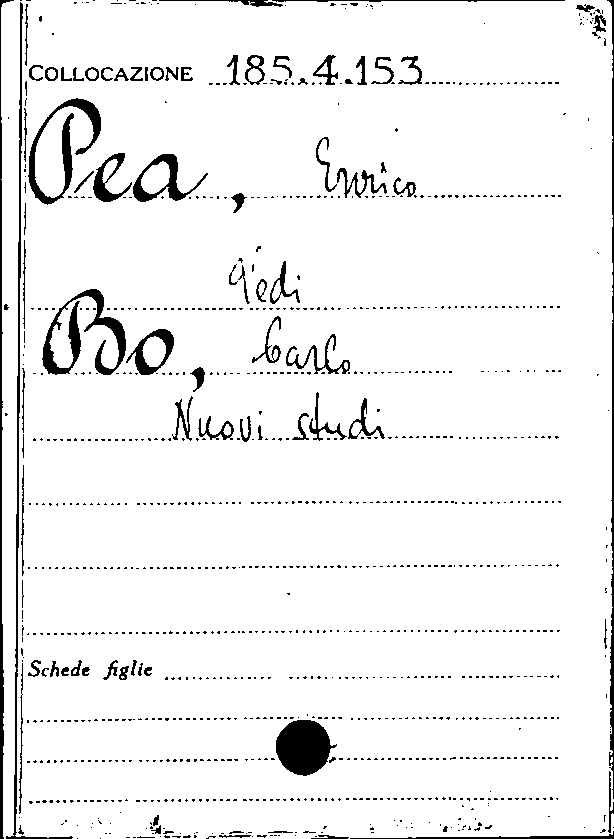 COLLOCAZIONE 185.4.153
Pea, Enrico
Vedi
Bo, Carlo
Nuovi studi
Schede figlie